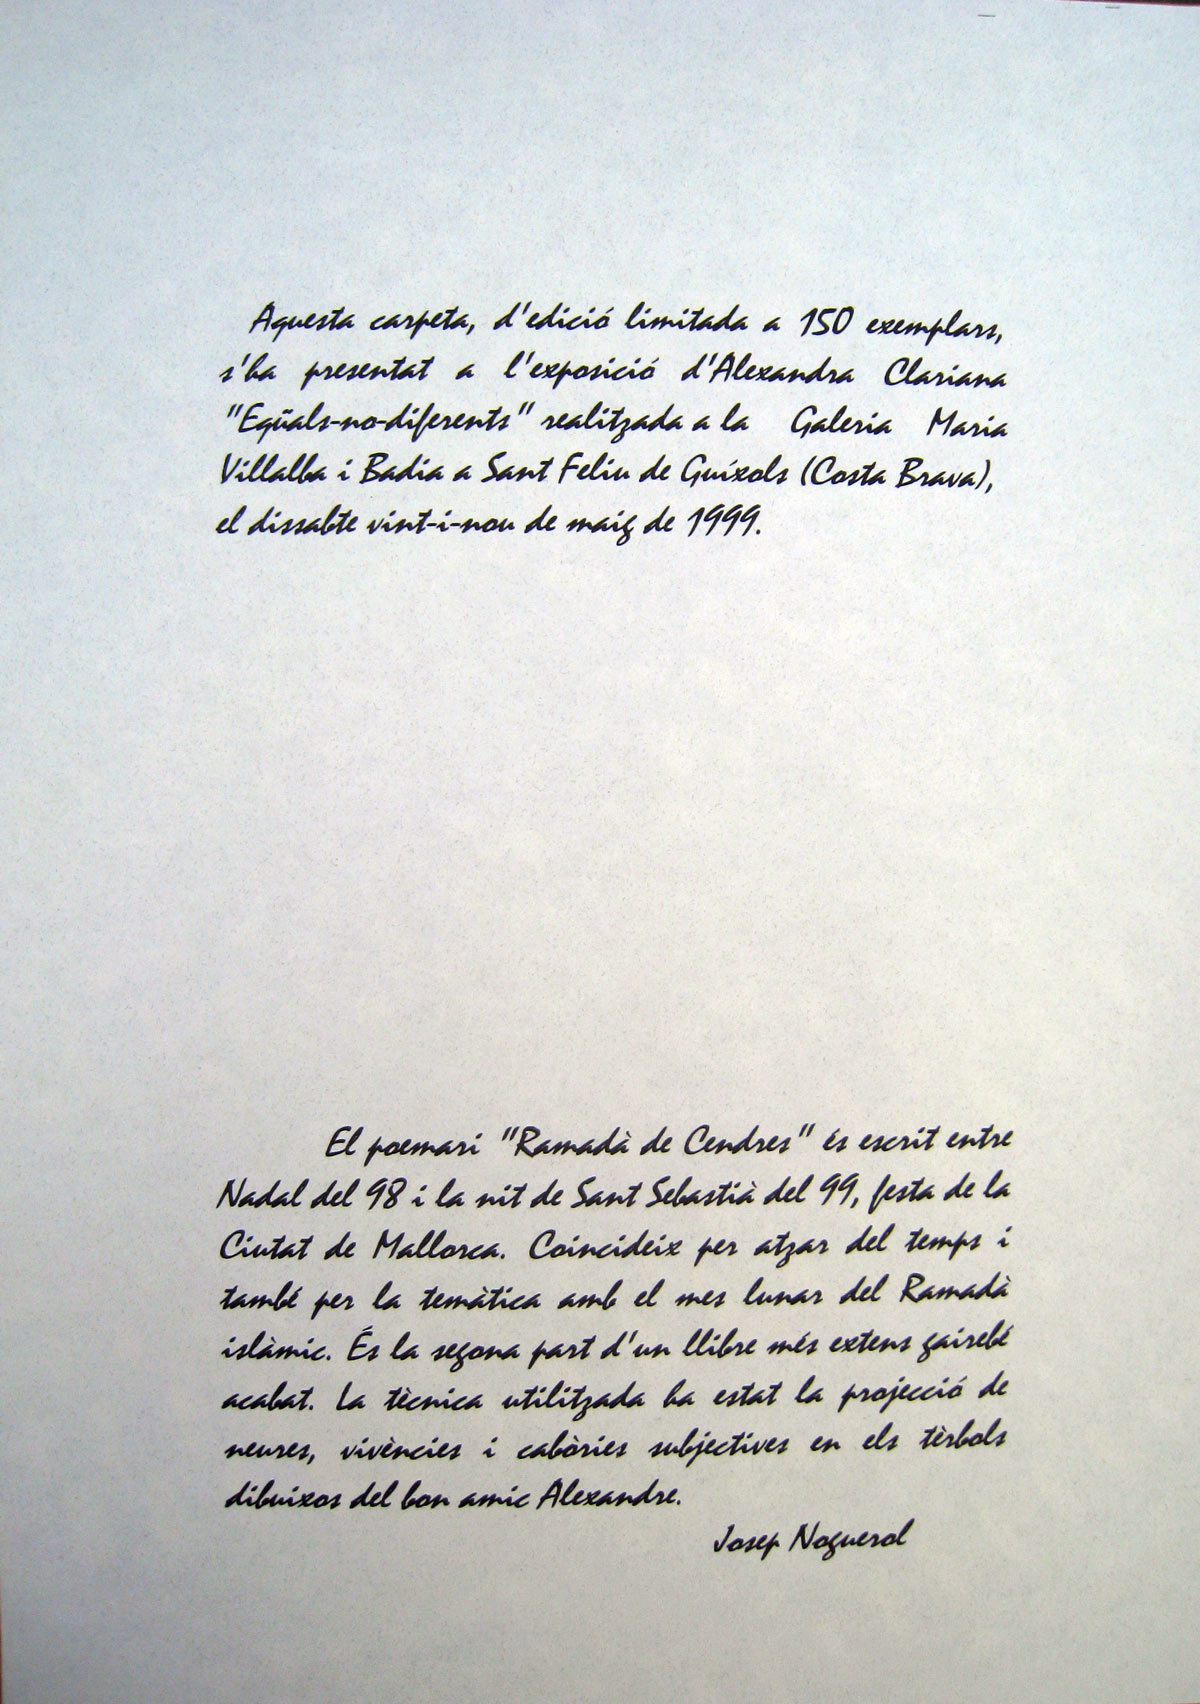 Aquesta carpeta, d'edició limitada a 150 exemplars,
s'ha presentat a l'exposició d'Alexandra Clariana
"Eqüals-no-diferents" realitzada a la Galeria Maria
Villalba i Badia a Sant Feliu de Guíxols (Costa Brava),
el dissabte vint-i-nou de maig de 1999.
El poemari "Ramadà de Cendres" és escrit entre
Nadal del 98 i la nit de Sant Sebastià del 99, festa de la
Ciutat de Mallorca. Coincideix per atzar del temps i
també per la temàtica amb el mes lunar del Ramadà
islàmic. És la segona part d'un llibre més extens gairebé
acabat. La tècnica utilitzada ha estat la projecció de
neures, vivències i cabòries subjectives en els tèrbols
dibuixos del bon amic Alexandre.
Josep Noguerol